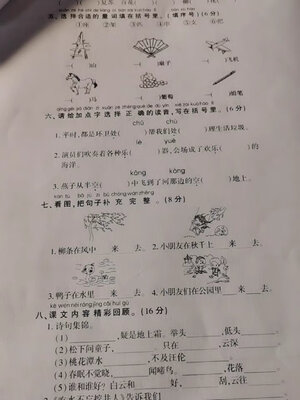 五、选择合适的量词填在括号里。(填序号)(6分)
一( )山 一( )扇子 一( )飞机
一( )马 一( )葡萄 一( )铅笔
qǐng gěi jiā diǎn zì xuǎn zé zhèng què de dú yīn xiě zài kuò hào lǐ
六、请给加点字选择正确的读音,写在括号里。(6分)
chù chǔ
1. 平时,都是环卫处( )帮我们处( )理生活垃圾。
lè yuè
2. 演员们吹奏着各种乐( )器,会场成了欢乐( )的
海洋。
kōng kòng
3. 燕子从半空( )中飞到了河那边的空( )地上。
kàn tú bǎ jù zi bǔ chōng wán zhěng
七、看图,把句子补充完整。(8分)
1. 柳条在风中____来____去。 2. 小朋友在秋千上____来____去。
3. 鸭子在水里____来____去。 4. 小朋友们在公园里____来____去。
kè wén nèi róng jīng cǎi huí gù
八、课文内容精彩回顾。(16分)
1. 诗句集锦。
(1)________,疑是地上霜。举头________,低头________。
(2)松下问童子,________。只在________,云深________。
(3)桃花潭水________,不及汪伦________。
(4)春眠不觉晓,________闻啼鸟。________,花落________。
(5)谁和谁好?白云和____好,____刮,云往____
2.《吃水不忘挖井人》告诉我们